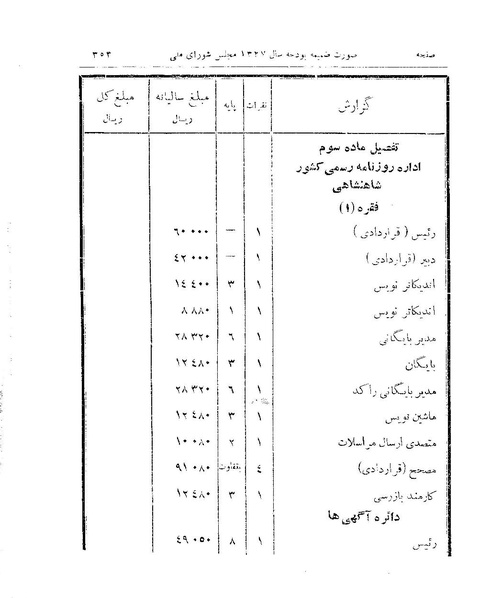 صفحه صورت ضمیمه بودجه سال ۱۳۲۷ مجلس شورای ملی ۳۵۳
گزارش نفرات پایه مبلغ سالیانه ریال مبلغ کل ریال
تفصیل ماده سوم
اداره روزنامه رسمی کشور
شاهنشاهی
فقره (۱)
رئیس ( قراردادی ) ۱ — ۶۰۰۰۰
دبیر (قراردادی ) ۱ — ۴۲۰۰۰
اندیکاتر نویس ۱ ۳ ۱۴۴۰۰
اندیکاتر نویس ۱ ۱ ۸۸۸۰
مدیر بایگانی ۱ ۶ ۲۸۳۲۰
بایگان ۱ ۳ ۱۲۴۸۰
مدیر بایگانی راکد ۱ ۶ ۲۸۳۲۰
ماشین نویس ۱ ۳ ۱۲۴۸۰
متصدی ارسال مراسلات ۱ ۲ ۱۰۰۸۰
مصحح (قراردادی ) ۴ بتفاوت ۹۱۰۸۰
کارمند بازرسی ۱ ۳ ۱۲۴۸۰
دائره آگهی ها
رئیس ۱ ۸ ۴۹۰۵۰